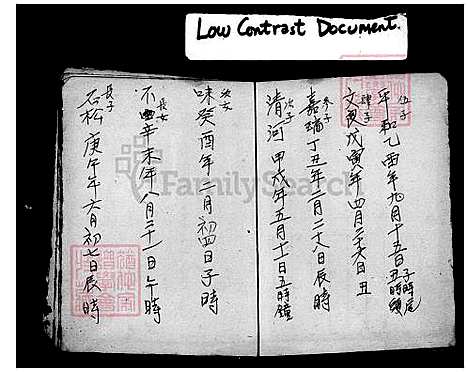 Low Contrast Document.
伍子
平和乙酉年九月十五日子時尾丑時頭
肆子
文 戊寅年四月二十六日丑
叁子
嘉 丁丑年二月二十八日辰時
次子
清河 甲戌年五月十一日五時鐘
次女
味癸酉年二月初四日子時
長女
不 辛未年八月二十一日午時
長子
石松 庚午年六月初七日辰時
FamilySearch